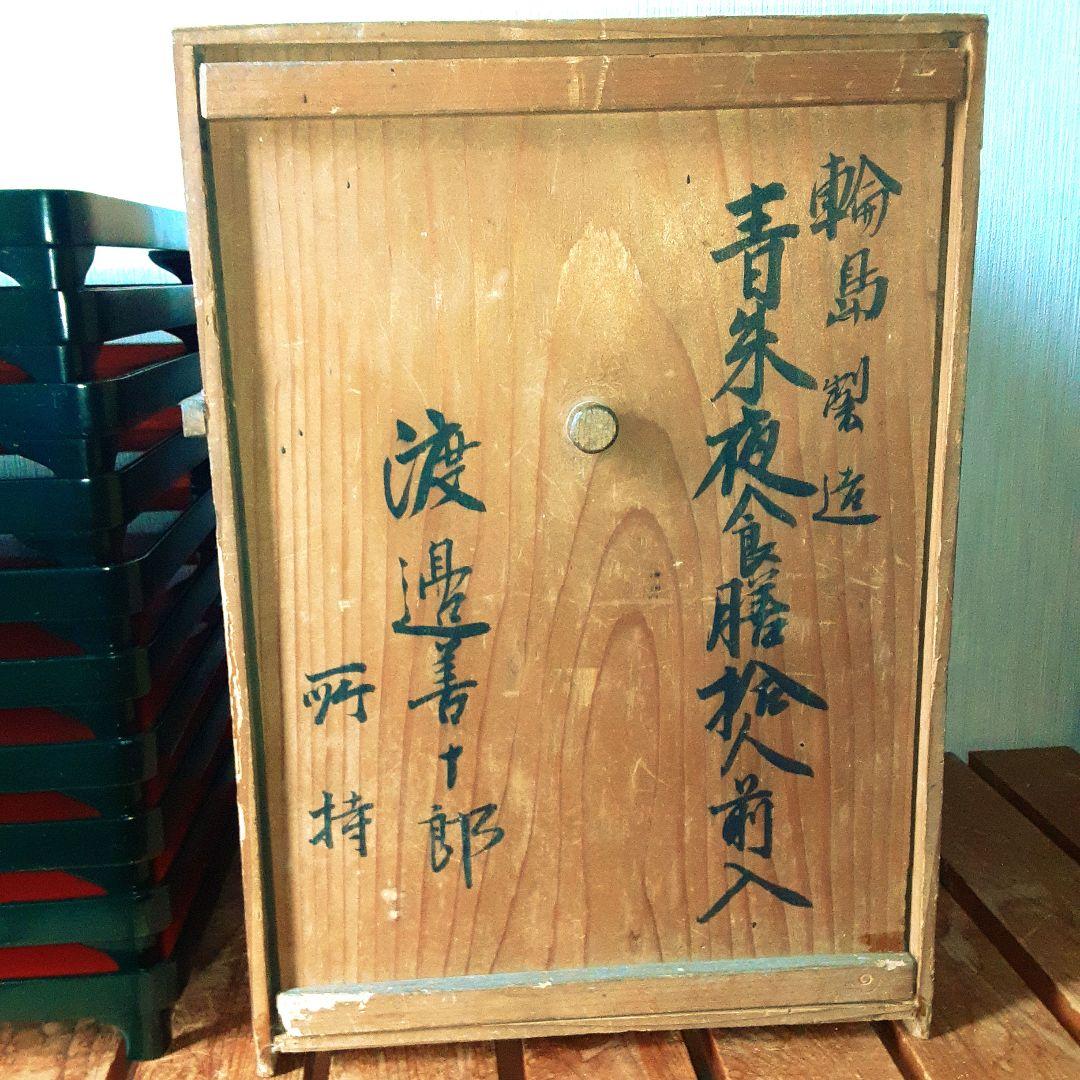 輪島製造
青朱夜食膳拾人前入
渡邉善十郎
所持